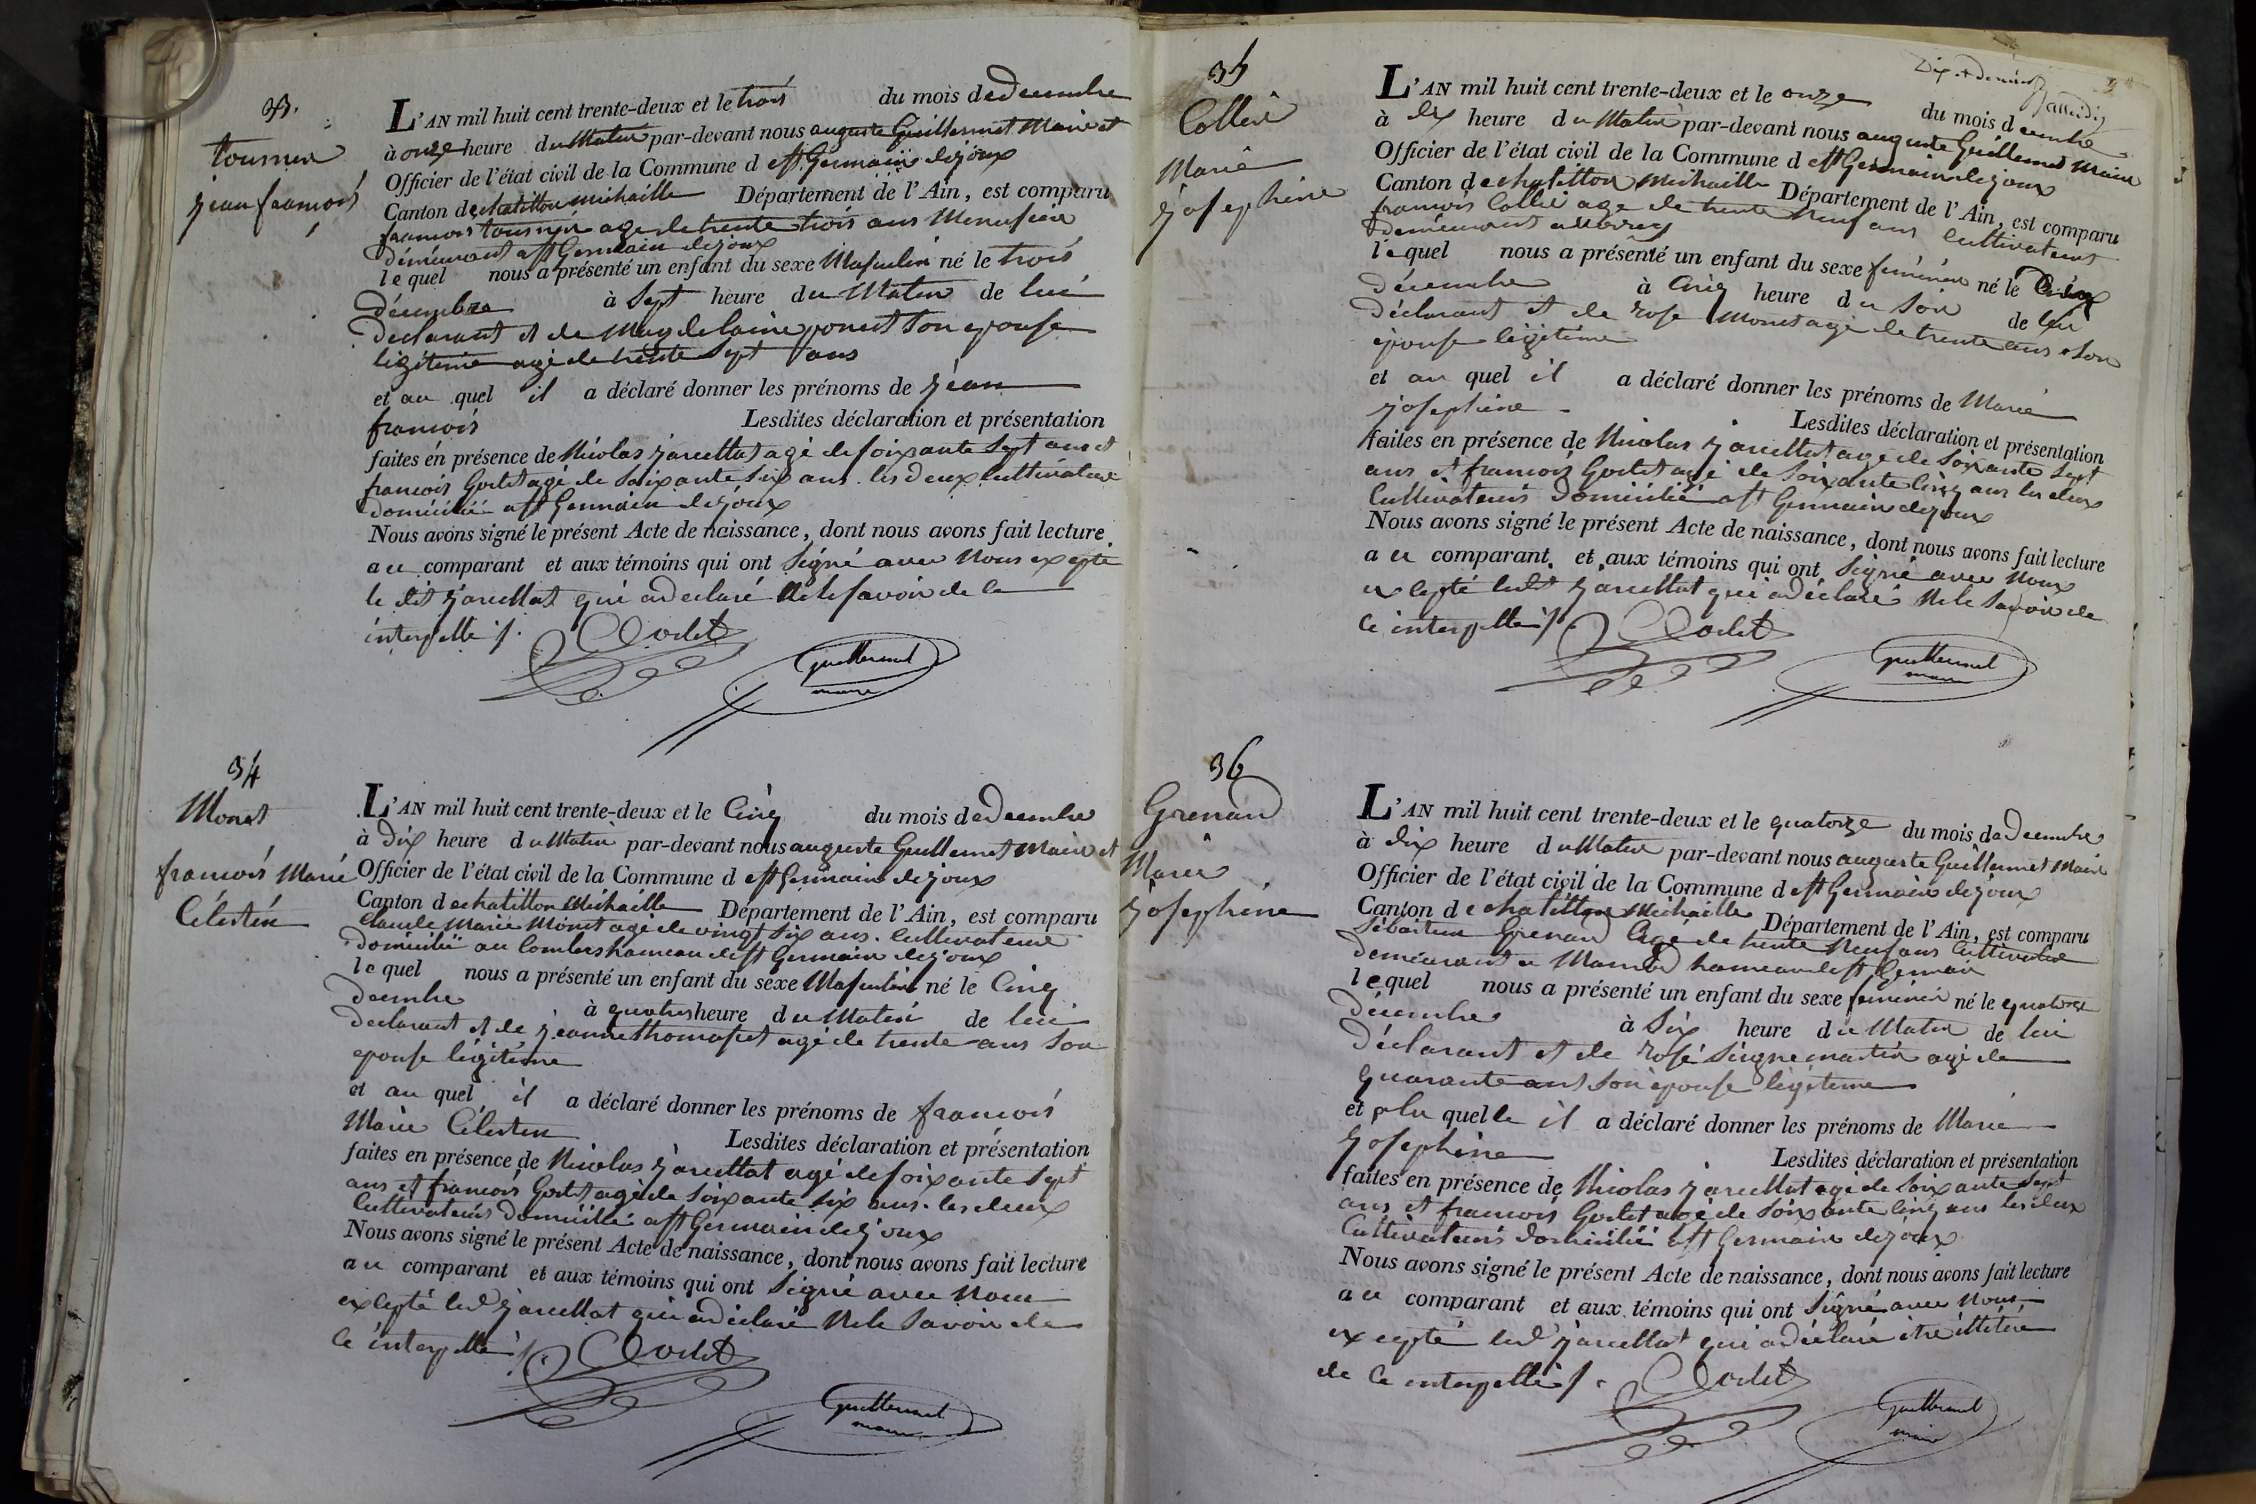 33.
tournier
jean françois
L'AN mil huit cent trente-deux et le trois du mois de decembre
à onze heure du Matin par-devant nous auguste Guillermet Maire et
Officier de l'état civil de la Commune d e st Germain dejoux
Canton de chatillon michaille Département de l'Ain, est comparu
francois tournier age de trente trois ans Menusier
demeurant a st Germain dejoux
lequel nous a présenté un enfant du sexe Masculin né le trois
décembre à Sept heure du Matin de lui
declarant et de Magdelaine ponest Son epouse
legitime agé de trente Sept ans
et au quel il a déclaré donner les prénoms de jean
francois Lesdites déclaration et présentation
faites en présence de Nicolas jaccollat agé de soixante Sept ans et
francois Godet agé de Soixante Six ans les deux Cultivateur
domicilié a st Germain dejoux
Nous avons signé le présent Acte de naissance, dont nous avons fait lecture
au comparant et aux témoins qui ont Signé avec Nous excepte
le dit jaccollat qui a declaré Ne le savoir de ce
interpellé /.
Godet
Guillermet
maire
34
Monet
francois Marie
Célestin
L'AN mil huit cent trente-deux et le Cinq du mois de Decembre
à Dix heure du Matin par-devant nous auguste Guillermet Maire et
Officier de l'état civil de la Commune d e st Germain dejoux
Canton de chatillon Michaille Département de l'Ain, est comparu
Claude Marie Monet agé de vingt Six ans. Cultivateur
domicilié au Combes hameau de st Germain dejoux
lequel nous a présenté un enfant du sexe Masculin né le Cinq
decembre à quatres heure du Matin de lui
declarant et de jeanne thomasset agé de trente ans Son
epouse légitime
et au quel il a déclaré donner les prénoms de francois
Marie Célestin Lesdites déclaration et présentation
faites en présence de Nicolas jaccollat agé de soixante Sept
ans et francois Godet agé de Soixante Six ans. les deux
Cultivateurs domicilié a st Germain dejoux
Nous avons signé le présent Acte de naissance, dont nous avons fait lecture
au comparant et aux témoins qui ont Signé avec Nous
excepté led jaccollat qui a déclaré Ne le Savoir de
Ce interpellé /.
Godet
Guillermet
maire
35
Collet
Marie
josephine
L'AN mil huit cent trente-deux et le onze du mois d ecembre
à dix heure du Matin par-devant nous auguste Guillermet Maire
Officier de l'état civil de la Commune d e st Germain dejoux
Canton de chatillon Michaille Département de l'Ain, est comparu
francois Collet age de trente Neuf ans Cultivateur
demeurant
lequel nous a présenté un enfant du sexe feminin né le
décembre à Cinq heure du Soir de lui
déclarant et de rose Monet agé de trente ans Son
epouse légitime
et au quel il a déclaré donner les prénoms de Marie
josephine - Lesdites déclaration et présentation
faites en présence de Nicolas jaccollat age de Soixante Sept
ans et francois Godet agé de Soixante Cinq ans les deux
Cultivateurs Domicilié a st Germain dejoux
Nous avons signé le présent Acte de naissance, dont nous avons fait lecture
au comparant et aux témoins qui ont Signé avec Nous
excepté ledt jaccollat qui a déclaré Ne le Savoir de
Ce interpellé /.
Godet
Guillermet
maire
36
Grenard
Marie
josephine
L'AN mil huit cent trente-deux et le quatorze du mois de Decembre
à Dix heure du Matin par-devant nous auguste Guillermet Maire
Officier de l'état civil de la Commune d e st Germain dejoux
Canton de chatillon Michaille Département de l'Ain, est comparu
Sébastien Grenard Agé de trente Neuf ans Cultivateur
demeurant a hameau de st Germain
lequel nous a présenté un enfant du sexe feminin né le quatorze
décembre à Six heure du Matin de lui
déclarant et de rose Seignemartin agé de
quarante ans Son epouse légitime
et a la quelle il a déclaré donner les prénoms de Marie
josephine Lesdites déclaration et présentation
faites en présence de Nicolas jaccollat agé de Soixante Sept
ans et francois Godet agé de Soixante Cinq ans les deux
Cultivateurs Domicilié a st Germain dejoux
Nous avons signé le présent Acte de naissance, dont nous avons fait lecture
au comparant et aux témoins qui ont Signé avec Nous
excepté led jaccollat qui a déclaré être illitéré
de Ce interpellé /.
Godet
Guillermet
maire